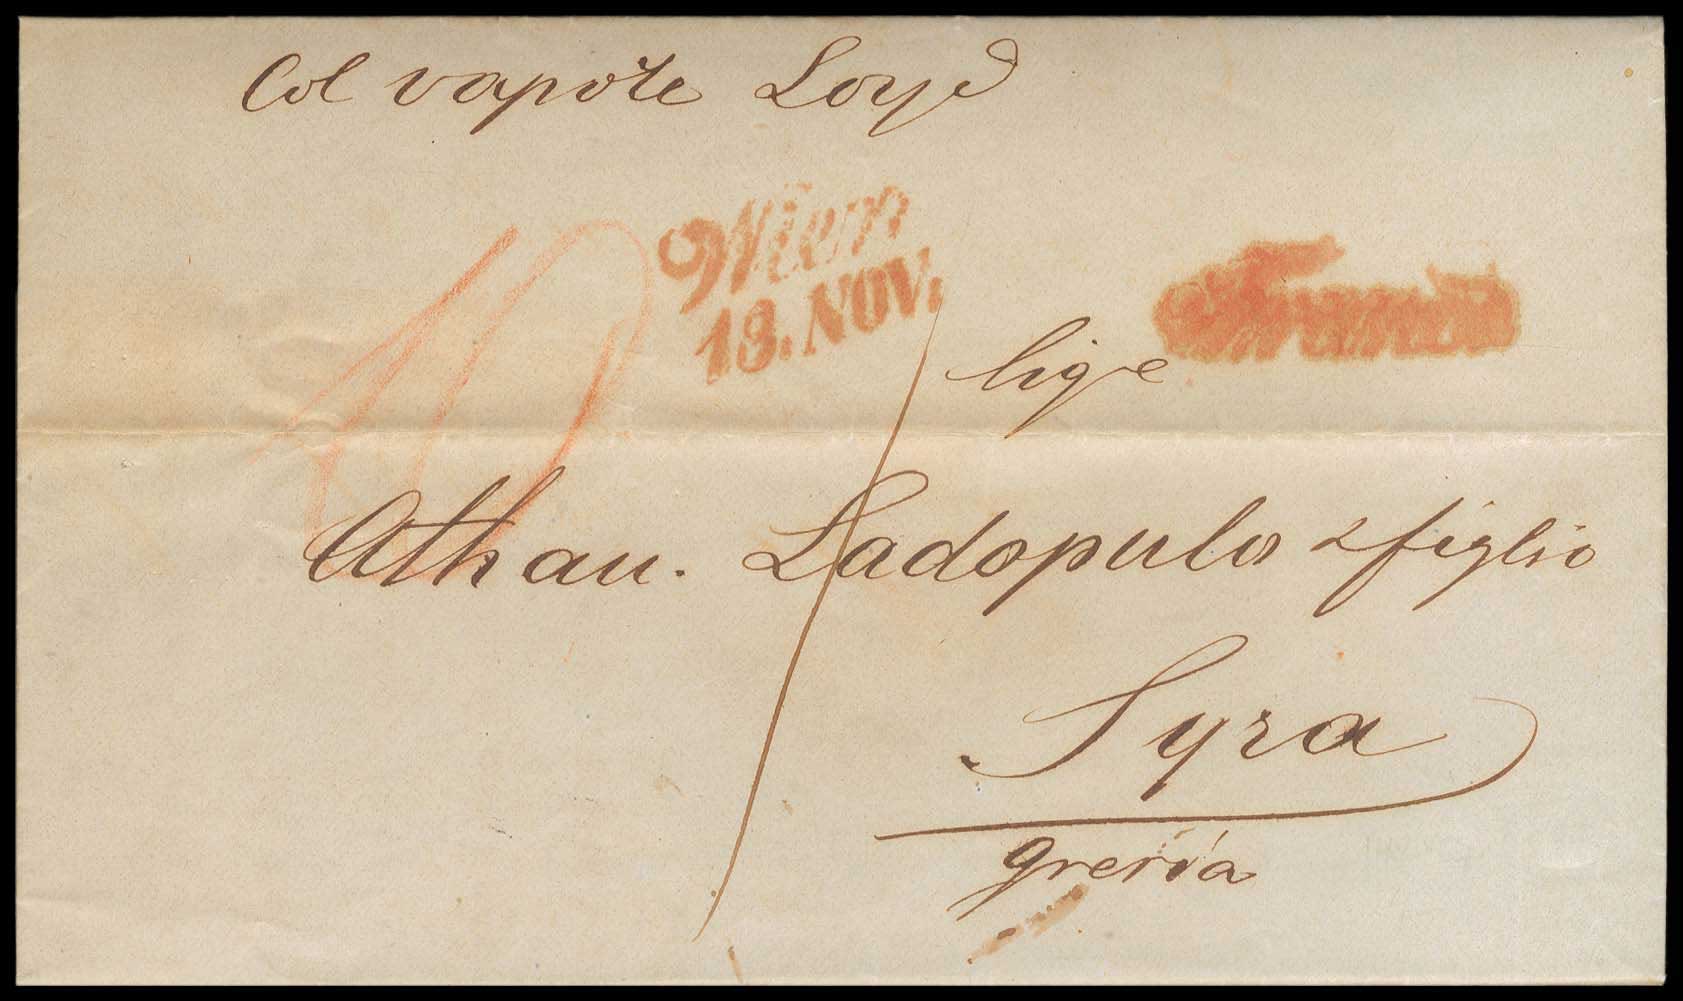 Col vapore Loyd
Wien
13. NOV.
Franco
40
Athan. Ladopulo & figlio
Syra
grecia